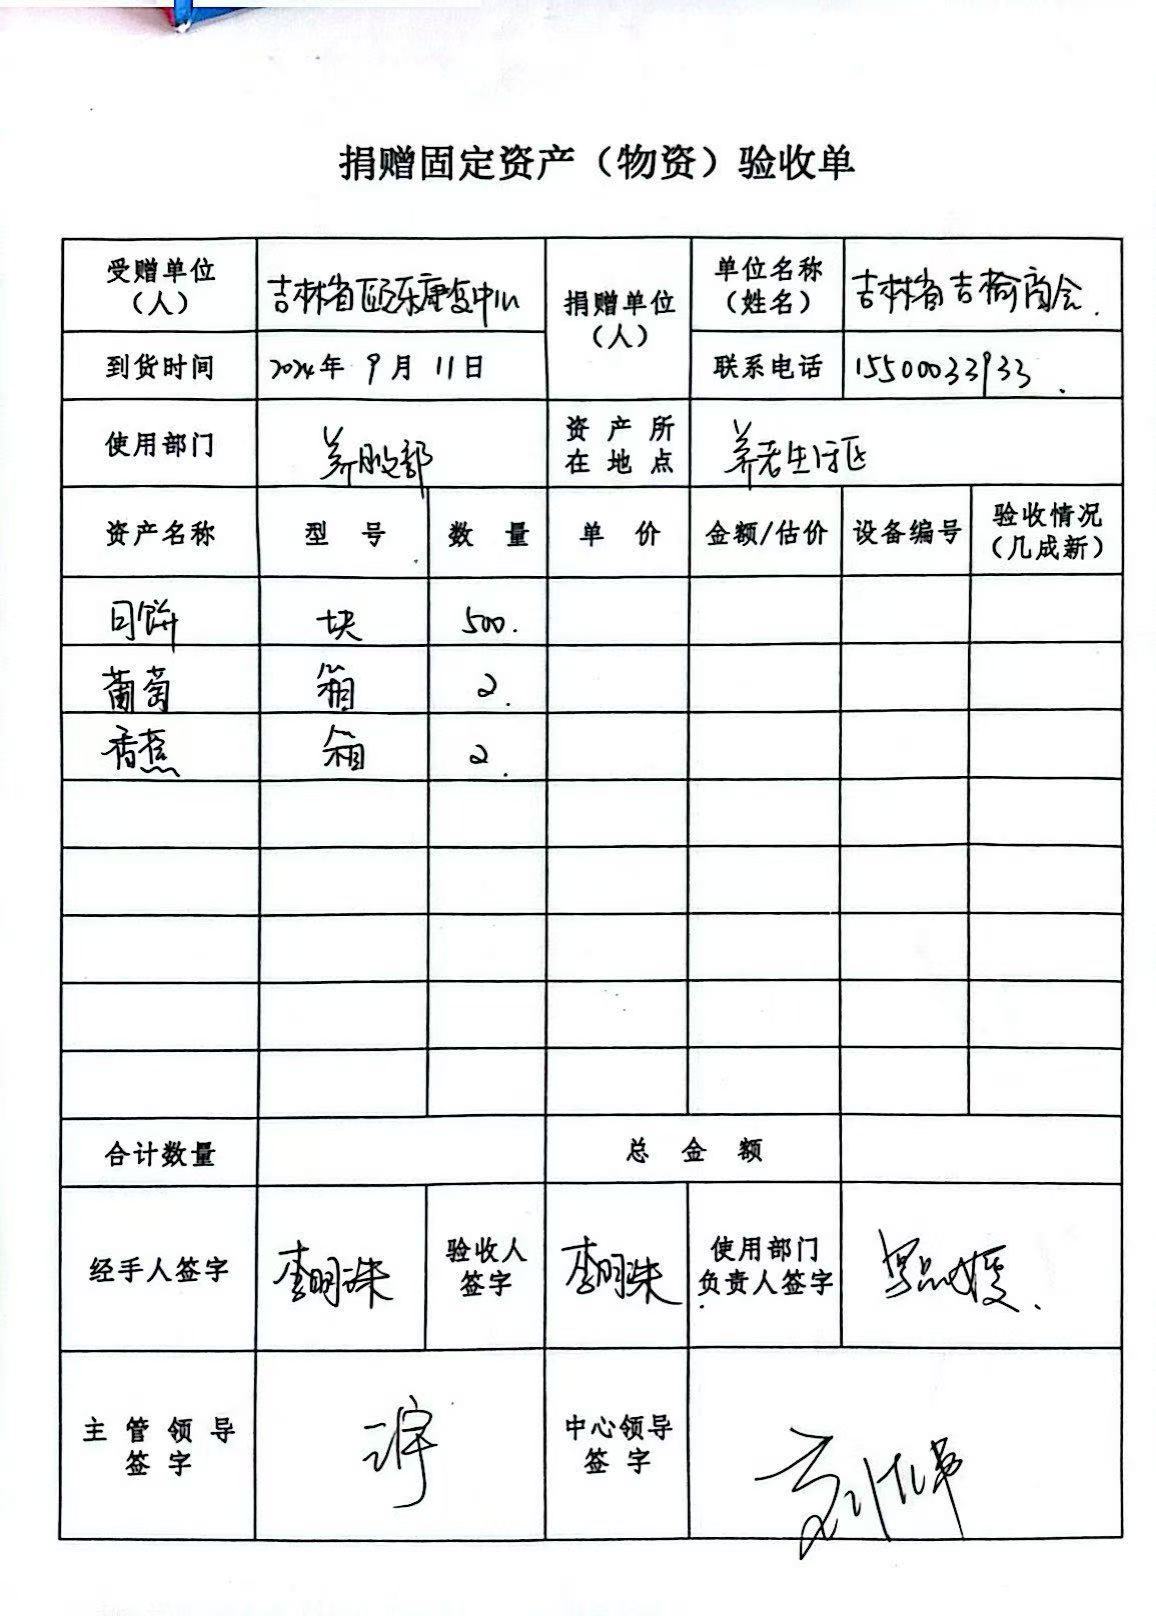 捐赠固定资产（物资）验收单
受赠单位
（人）
吉林省区乐康复中心
捐赠单位
（人）
单位名称
（姓名）
吉林省吉榆商会.
到货时间
2024年 9月 11日
联系电话
15500033933.
使用部门
养服部
资产所
在地点
养老生活区
资产名称
型号
数量
单价
金额/估价
设备编号
验收情况
（几成新）
月饼 块 500.
葡萄 箱 2.
香蕉 箱 2.
合计数量
总金额
经手人签字
李明珠
验收人
签字
李明珠
使用部门
负责人签字
主管领导
签字
中心领导
签字